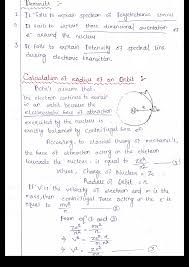 Demerits :-
1 It Fails to explain spectrum of Polyelectronic species
2 It fails to explain three dimensional orientation of
e⁻ around the nucleus
3 It fails to explain Intensity of spectral lines
during electronic transition.
Calculation of radius of an Orbit :-
Bohr's assume that
the electron continue to revolve
in an orbit because the
electrostatic force of attraction
executed by the nucleus is
exactly balanced by centrifugal force
According to classical theory of mechanic's,
the force of attraction acting on the electron
towards the nucleus is equal to
Where, Charge of Nucleus = Ze
Radius of Orbit = r
If V is the velocity of electron and m is the
mass, then centrifugal force acting on the e⁻ is
equal to
From ① and ②